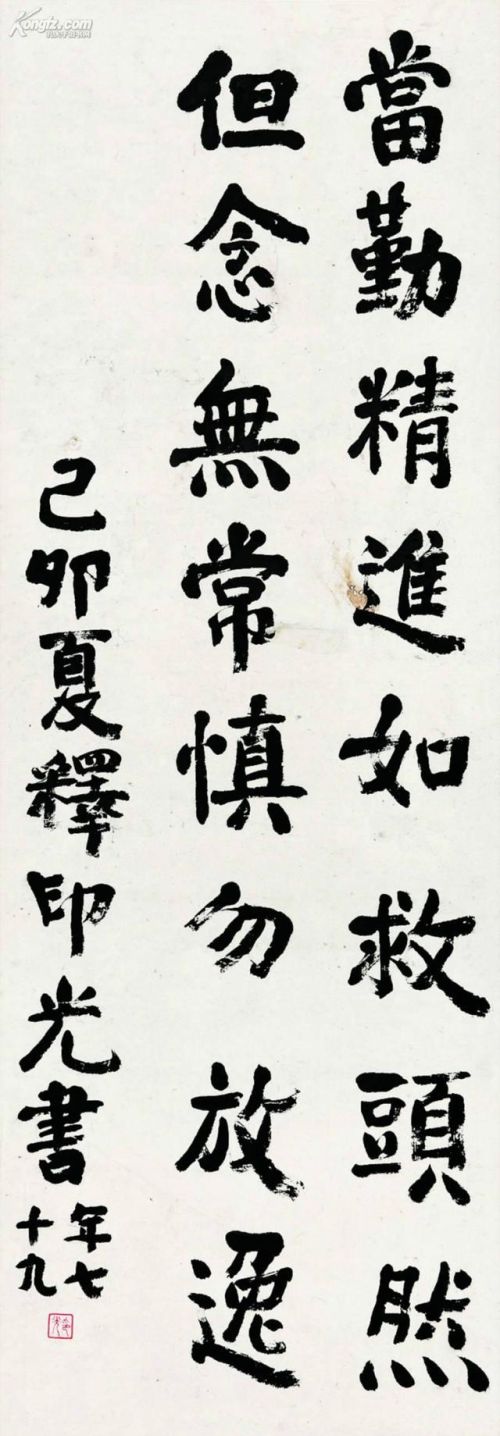 當勤精進如救頭然
但念無常慎勿放逸
己卯夏釋印光書
年七
十九
Kongfz.com